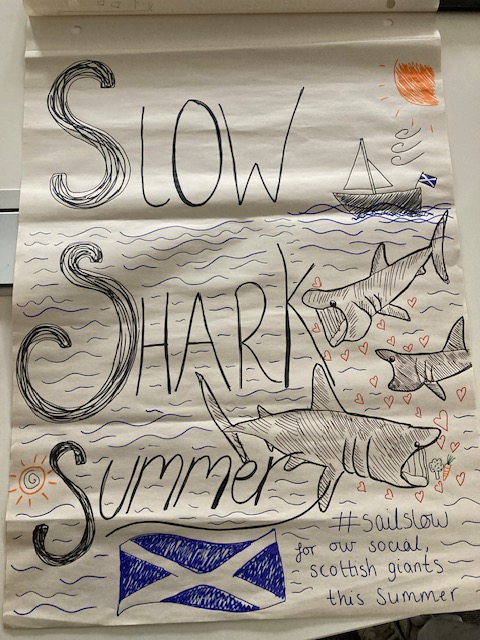 SLOW
SHARK
Summer
#sailslow
for our social,
scottish giants
this summer